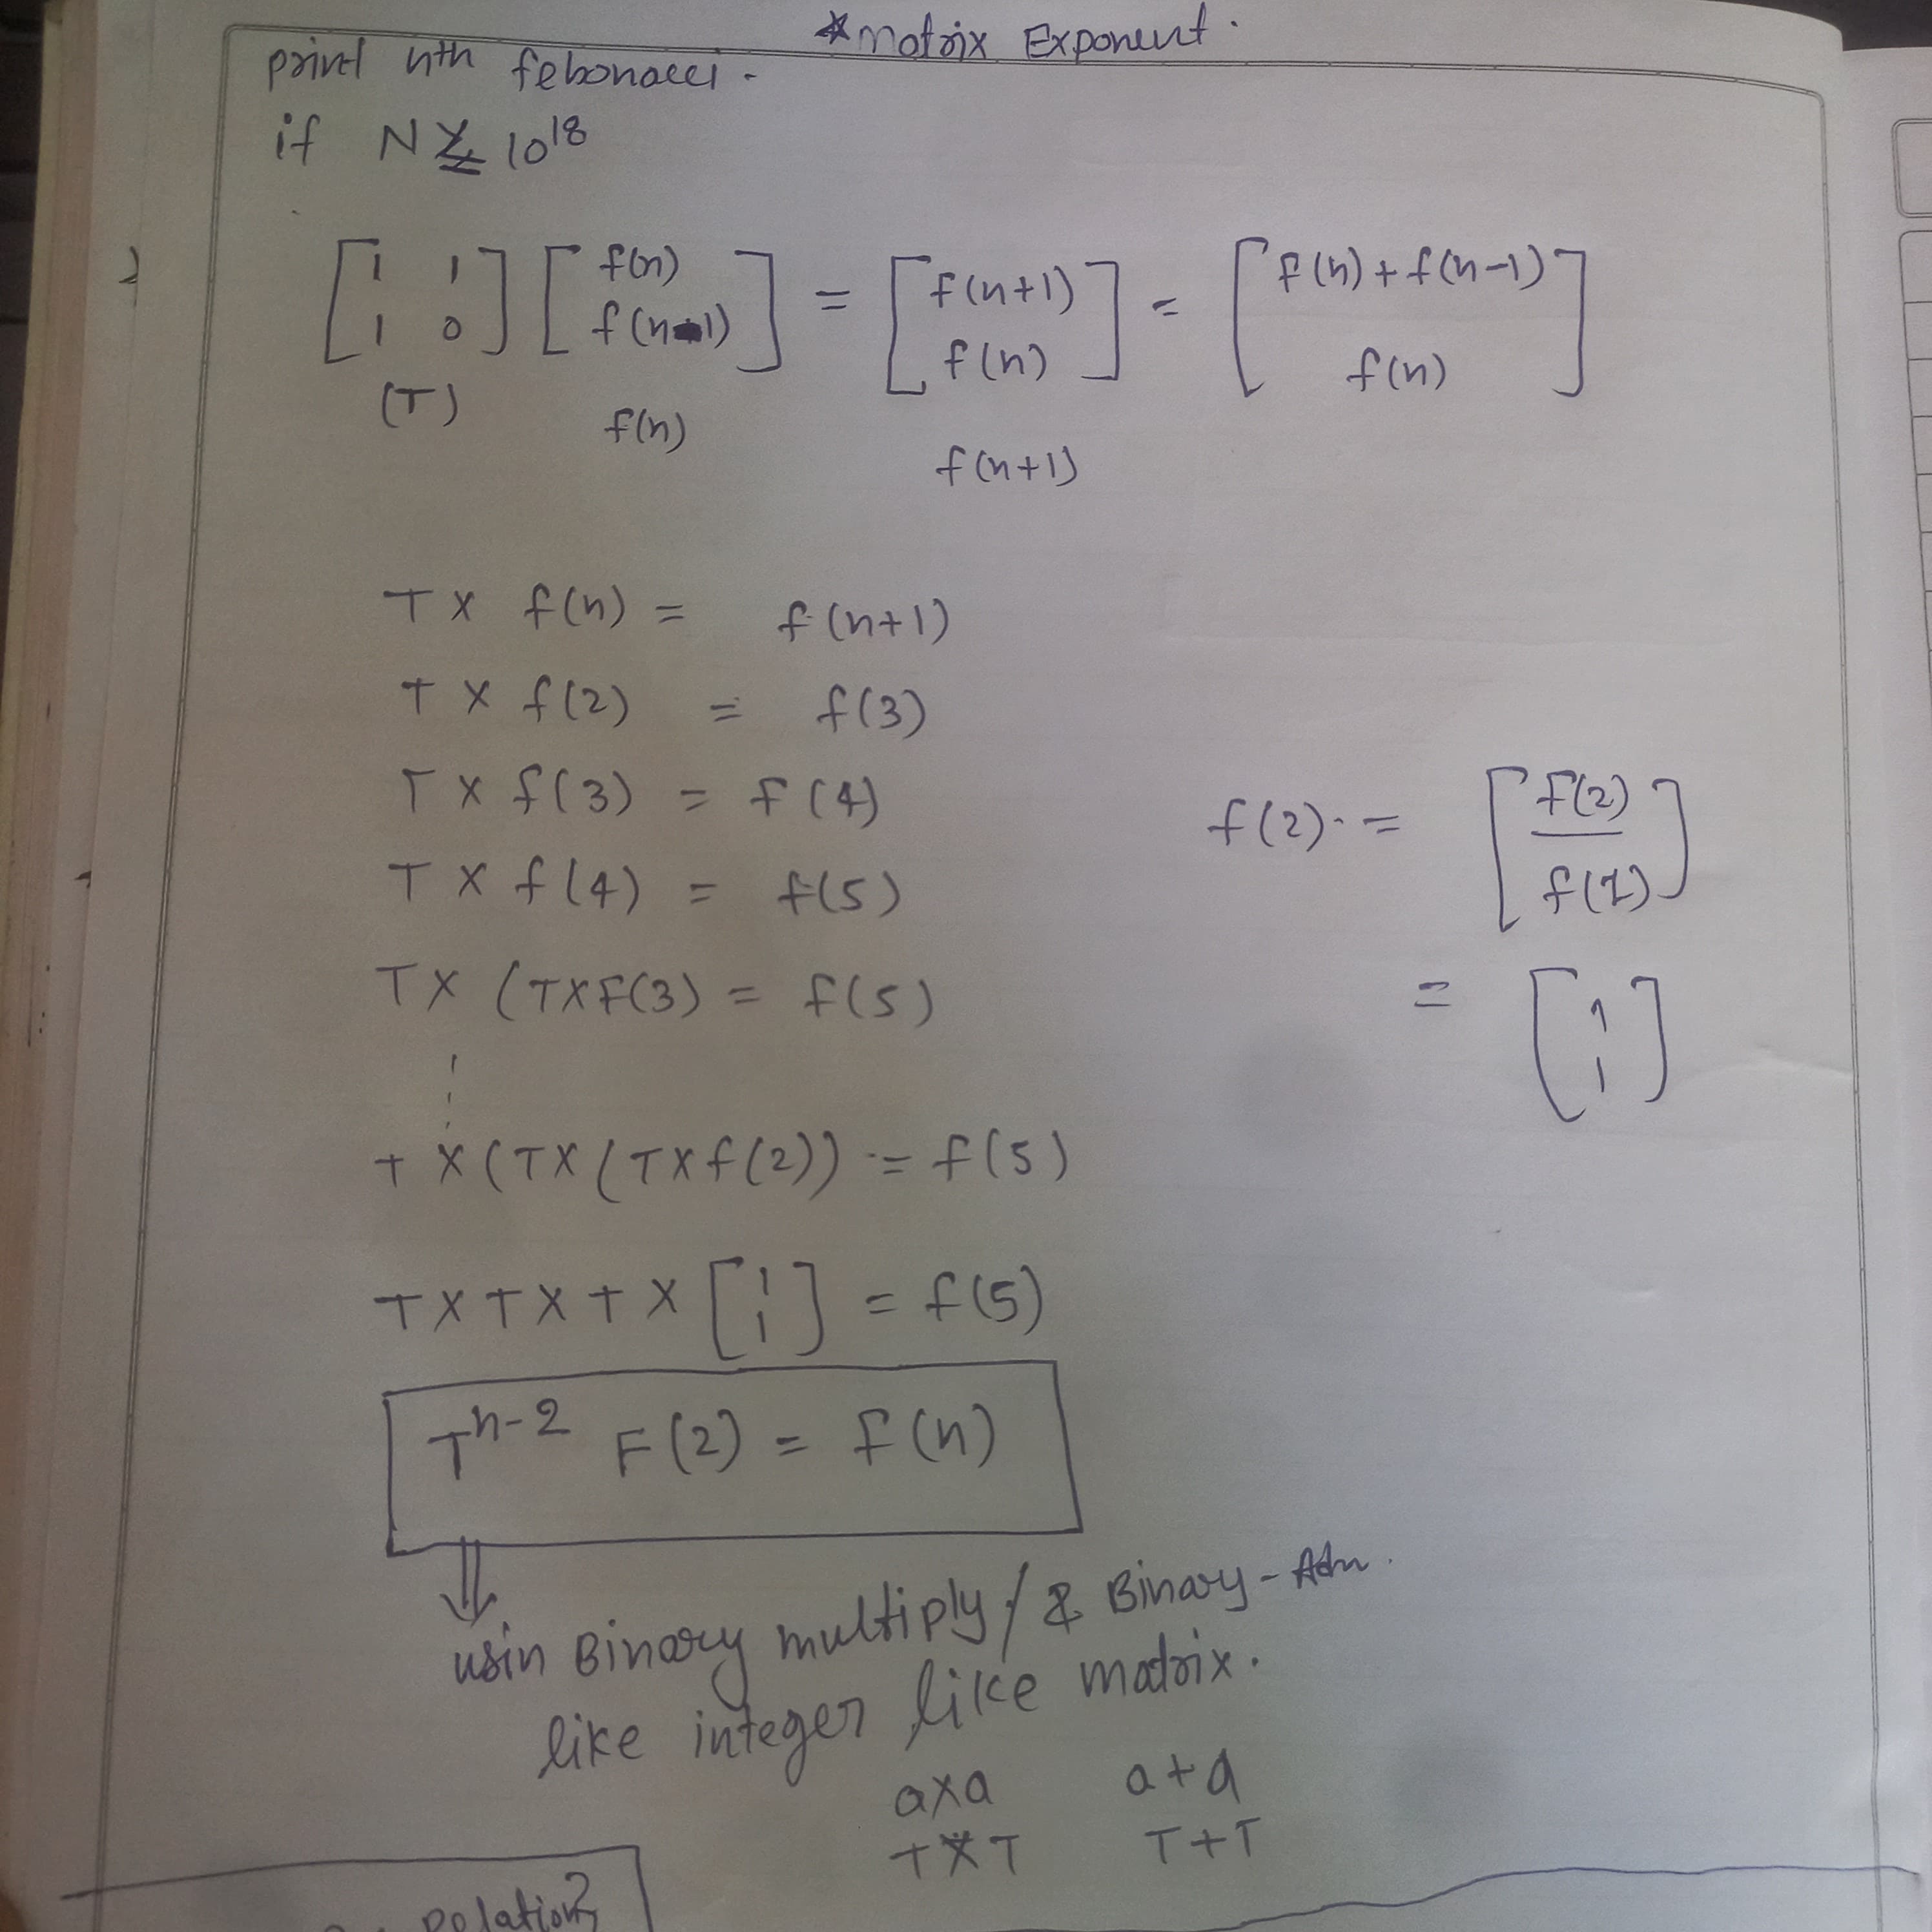 *Matrix Exponent.
print nth febonacci.
if N ≤ 10^18
[1 1; 1 0] [f(n); f(n-1)] = [f(n+1); f(n)] = [f(n)+f(n-1); f(n)]
(T) f(n) f(n+1)
T X f(n) = f(n+1)
T X f(2) = f(3)
T X f(3) = F(4)
T X f(4) = f(5)
f(2) = [F(2); f(1)]
= [1; 1]
TX (TXF(3) = f(5)
T X (TX (TXf(2)) = f(5)
T X T X T X [1; 1] = f(5)
T^n-2 F(2) = f(n)
⇓
usin Binary multiply / & Binary-
like integer like matrix.
axa a+a
TXT T+T